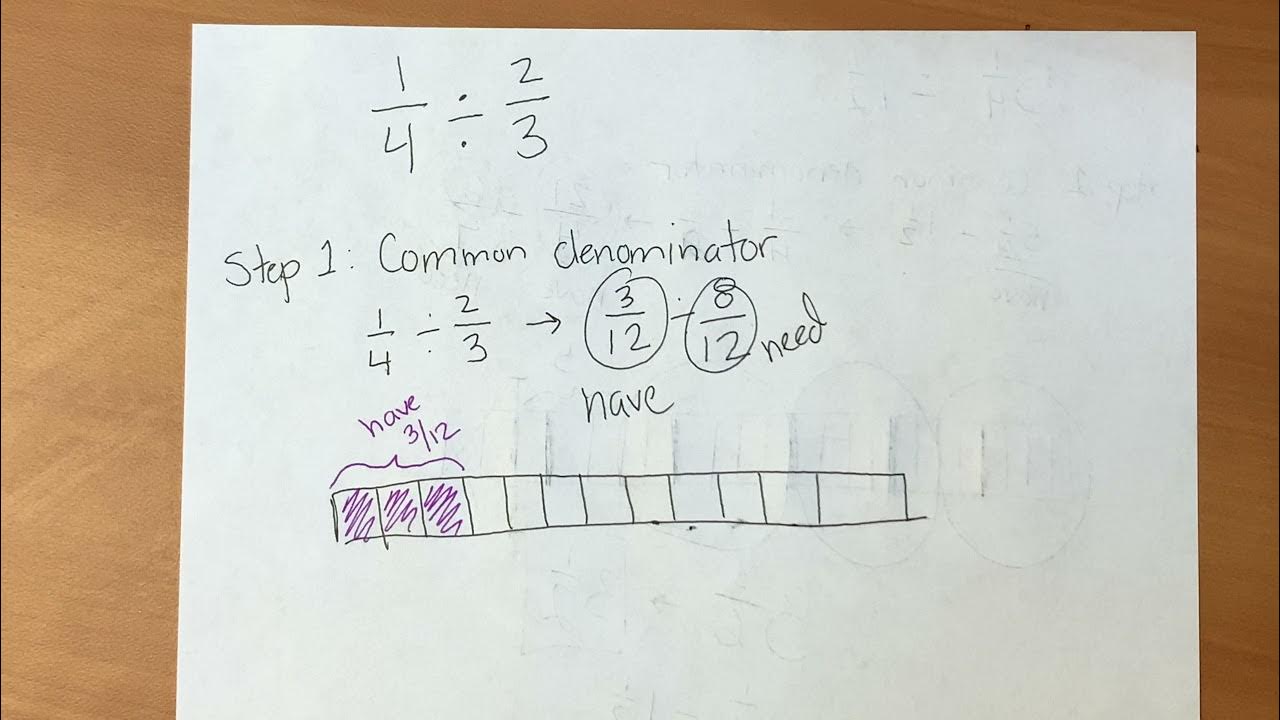 1/4 ÷ 2/3
Step 1: Common denominator
1/4 ÷ 2/3 → 3/12 ÷ 8/12 need
have
have
3/12